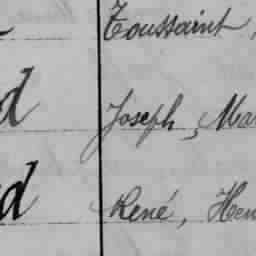 Toussaint,
d Joseph, Ma
d René, Hen